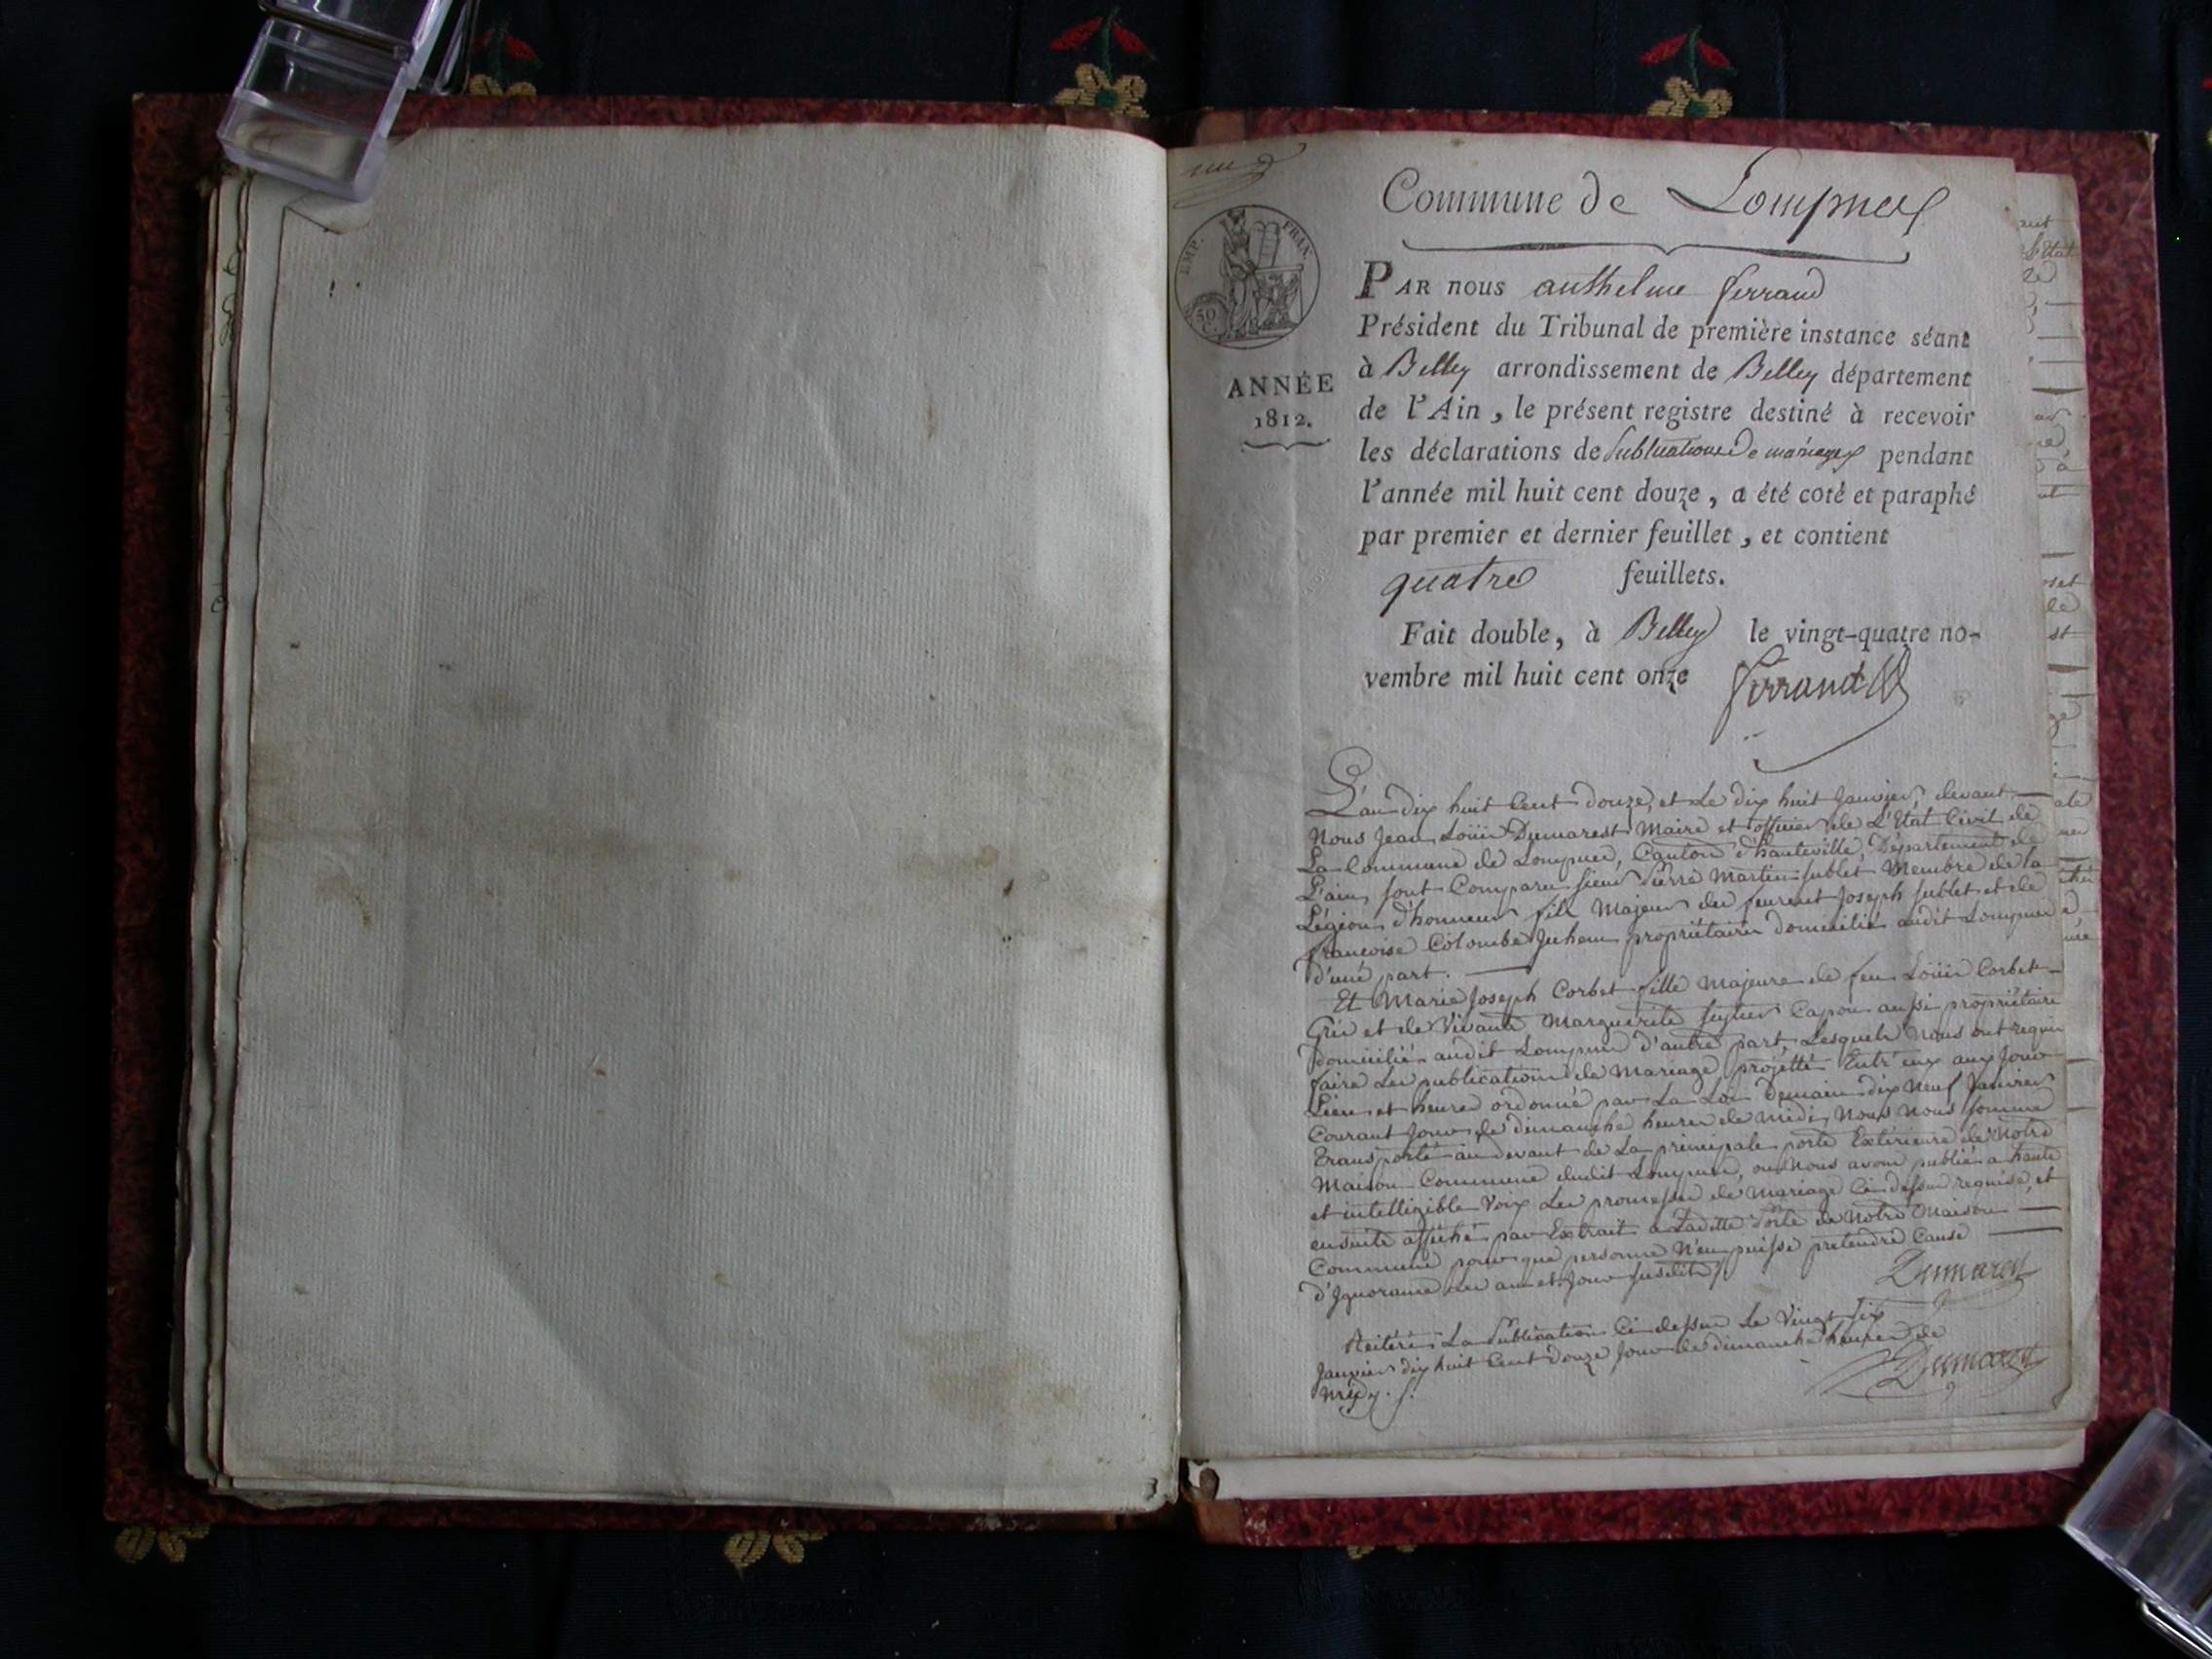 Commune de Lompnes
EMP. FRAN.
50
C.
ANNÉE
1812.
PAR nous anthelme ferrand
Président du Tribunal de première instance séant
à Belley arrondissement de Belley département
de l'Ain, le présent registre destiné à recevoir
les déclarations de publications de mariages pendant
l'année mil huit cent douze, a été coté et paraphé
par premier et dernier feuillet, et contient
quatre feuillets.
Fait double, à Belley le vingt-quatre no-
vembre mil huit cent onze ferrand
L'an dix huit Cent douze, et Le dix huit Janvier, devant
Nous Jean Loüis Dumarest Maire et officier de L'Etat Civil de
La Commune de Lompnes, Canton d'hauteville, Département de
L'ain, sont Comparu sieur Pierre Martin sublet Membre de la
Légion d'honneur fils Majeur de Joseph sublet et de
francoise Colombe Juhem propriétaire domicilié audit Lompnes
d'une part.
Et Marie Joseph Corbet fille Majeure de feu Loüis Corbet
Gris et de Vivante Marguerite Capon aussi propriétaire
domicilié audit Lompnes d'autre part, Lesquels Nous ont requis
faire Les publications de Mariage projetté Entr'eux aux Jour
Lieu et heure ordonné par La Loi Demain dix Neuf Janvier
Courant Jour de dimanche heures de midi, Nous Nous somme
transporté au devant de La principale porte Extérieure de Notre
Maison Commune dudit Lompnes, ou Nous avons publié a haute
et intelligible Voix Les promesses de Mariage Ci dessus requise, et
ensuite affiché par Extrait a Laditte Porte de Notre Maison
Commune pour que personne N'en puisse pretendre Cause
d'Ignorance Les an et Jour susdits Dumarest
Réitéré La Publication Ci dessus Le Vingt Six
Janvier dix huit Cent douze Jour de dimanche heures de
midy. Dumarest